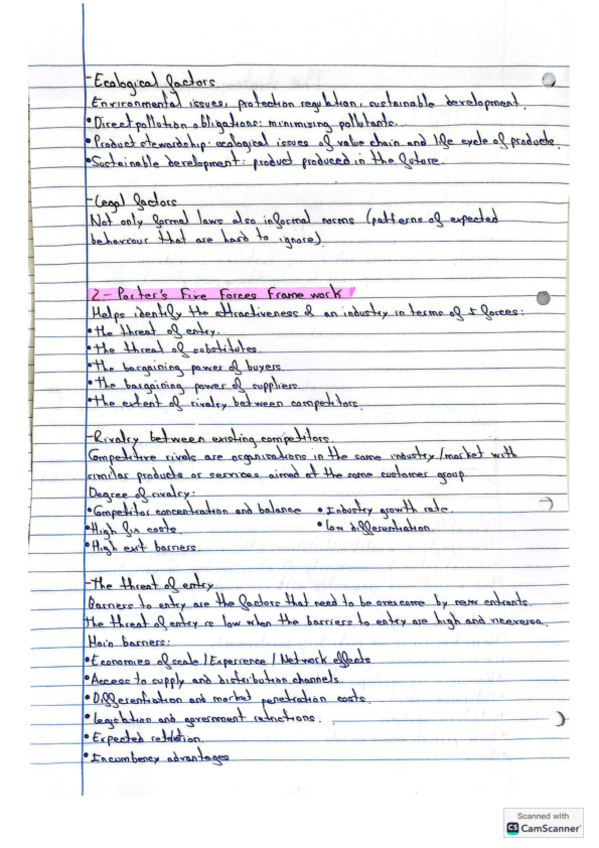 -Ecological factors
Environmental issues, protection regulation, sustainable development.
•Direct pollution obligations: minimising pollutants.
•Product stewardship: ecological issues of value chain and life cycle of products.
•Sustainable development: product produced in the future.
-Legal factors
Not only formal laws also informal norms (patterns of expected
behaviour that are hard to ignore).
2-Porter's Five Forces Frame work
Helps identify the attractiveness of an industry in terms of 5 forces:
•the threat of entry.
•the threat of substitutes.
•the bargaining power of buyers.
•the bargaining power of suppliers.
•the extent of rivalry between competitors.
-Rivalry between existing competitors.
Competitive rivals are organisations in the same industry/market with
similar products or services aimed at the same customer group.
Degree of rivalry:
•Competitor concentration and balance •Industry growth rate.
•High fix costs. •low differentiation.
•High exit barriers.
-The threat of entry
Barriers to entry are the factors that need to be overcome by new entrants.
the threat of entry is low when the barriers to entry are high and viceversa.
Main barriers:
•Economies of scale/Experience/Network effects
•Access to supply and distribution channels.
•Differentiation and market penetration costs.
•legislation and government restrictions.
•Expected retaliation.
•Incumbency advantages
Scanned with
CS CamScanner